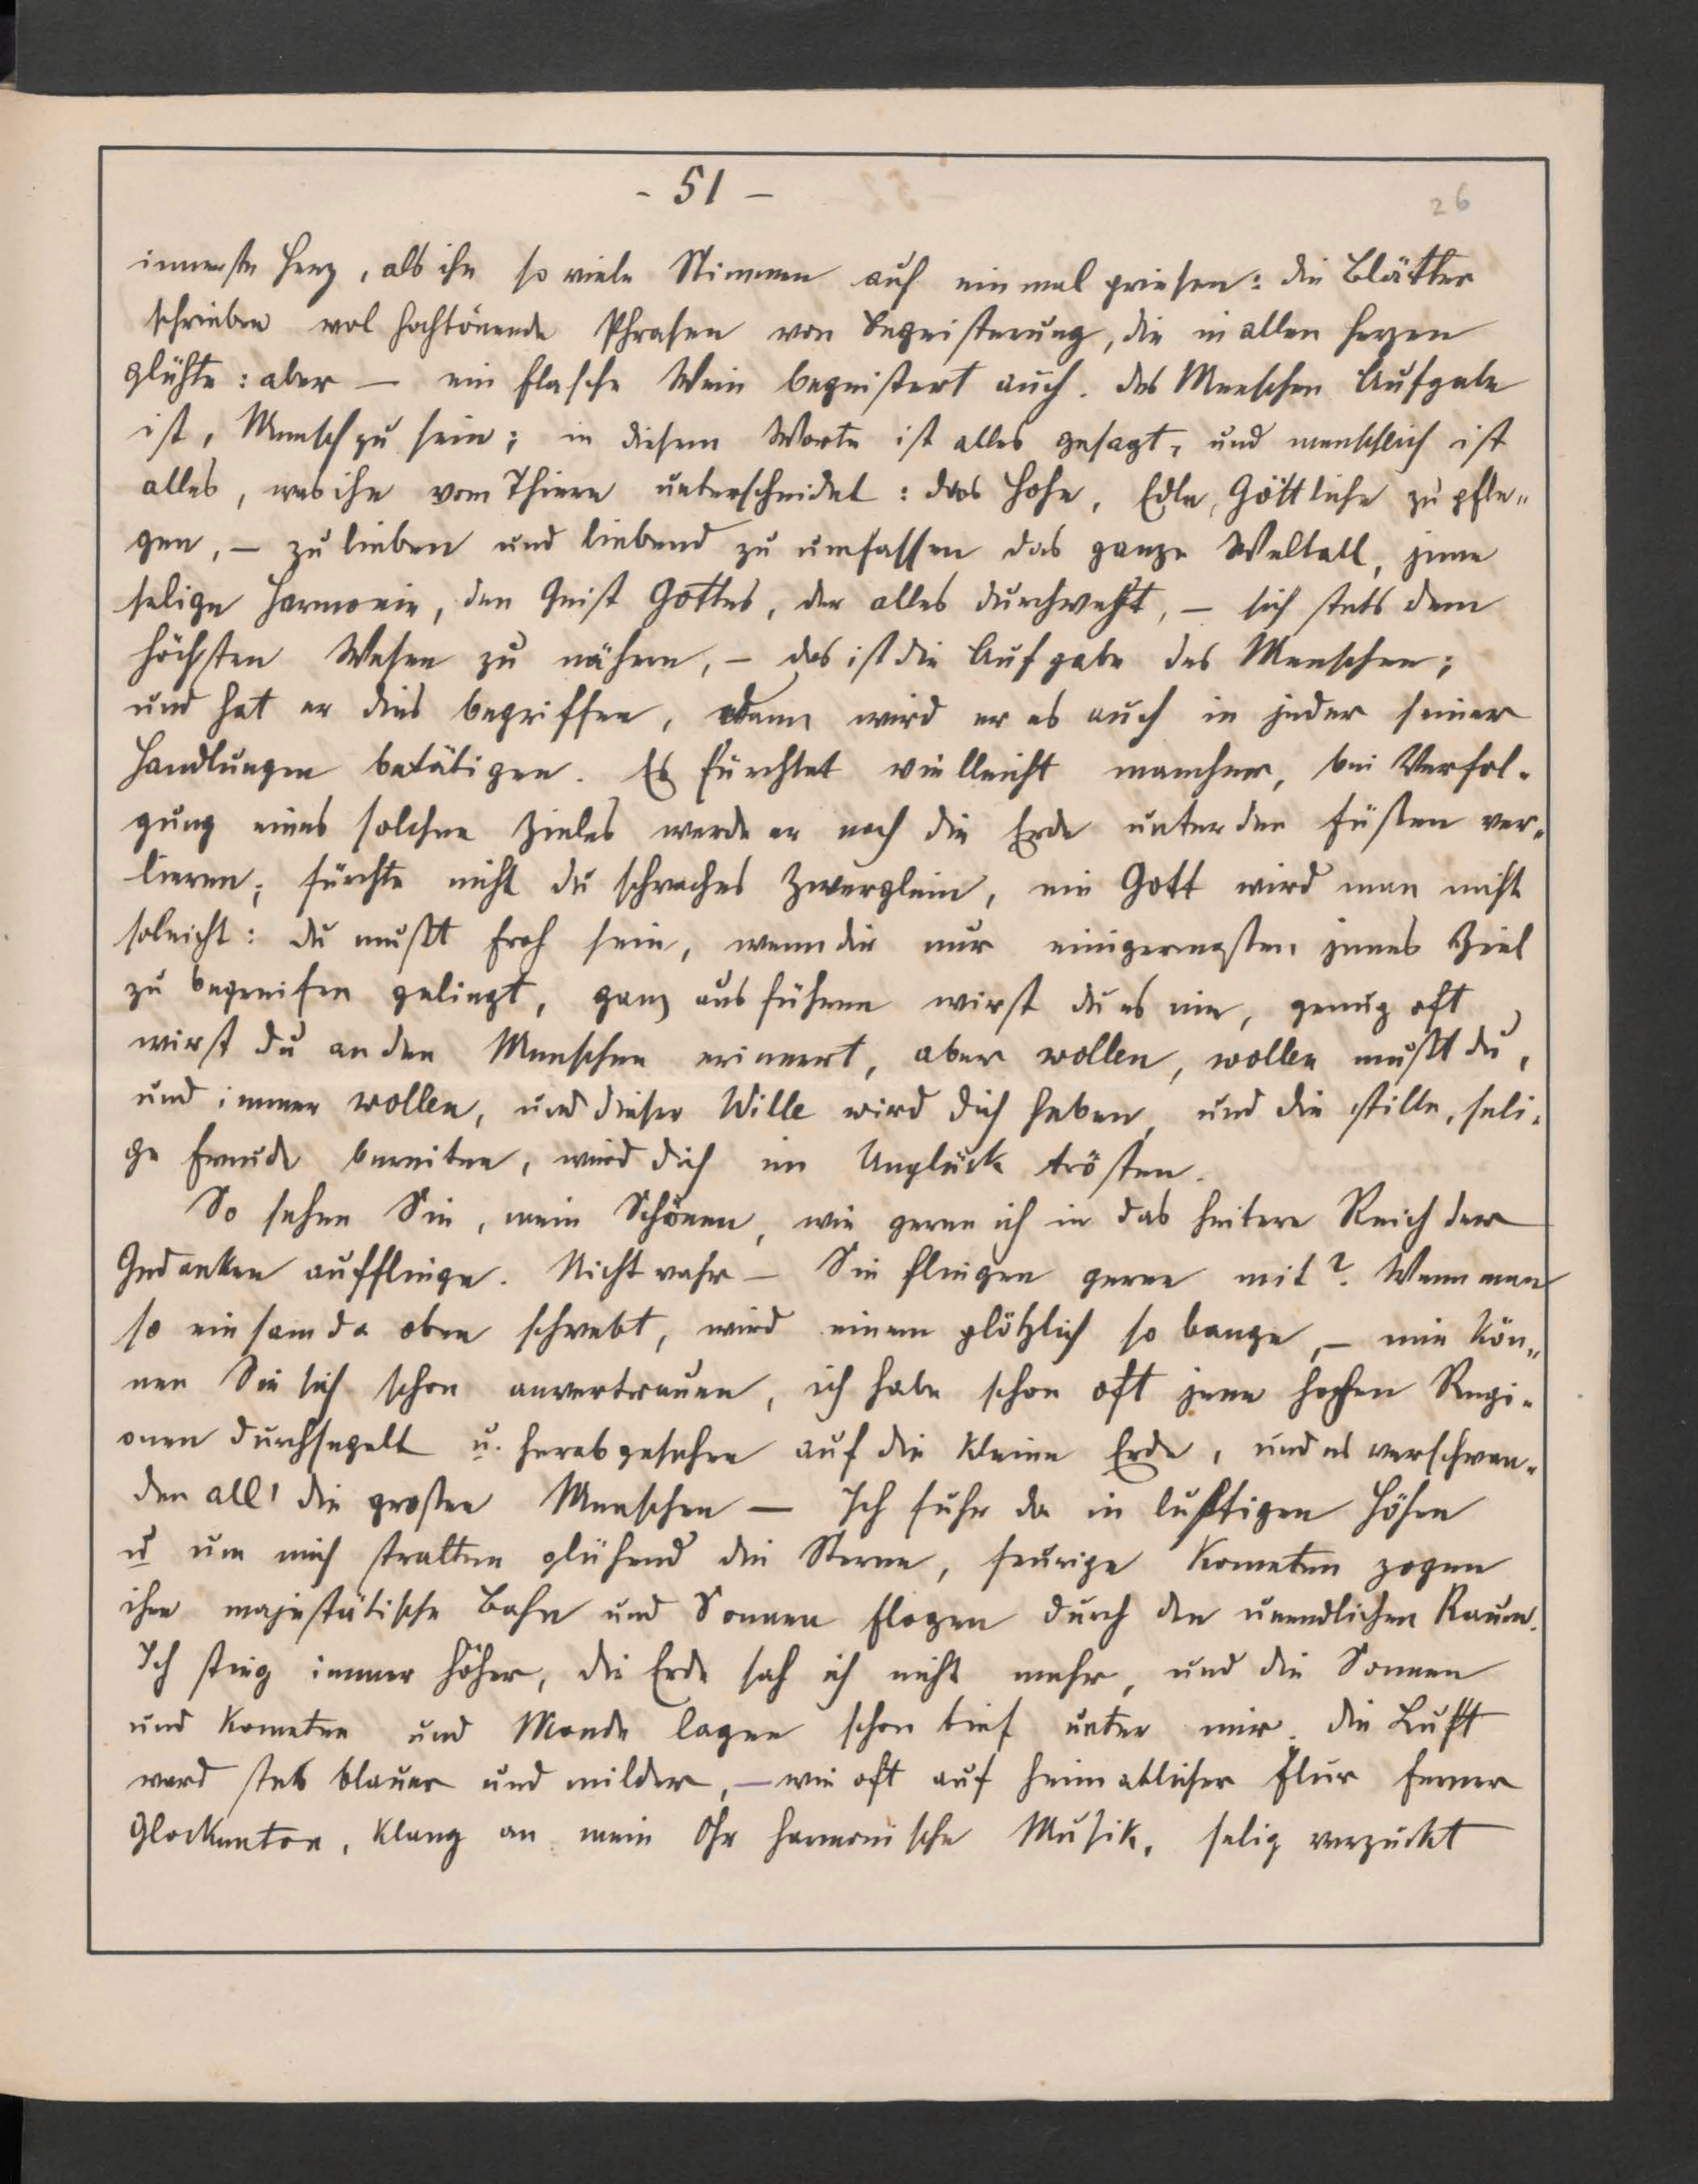 - 51 -
26
innerste Herz, als ihn so viele Stimmen auf einmal priesen: die Blätter
schrieben wol hochtönende Phrasen von Begeisterung, die in allen Herzen
glühte: aber — ein Flasche Wein begeistert auch. des Menschen Aufgabe
ist, Mensch zu sein; in diesem Worte ist alles gesagt, und menschlich ist
alles, was ihn vom Thiere unterscheidet: das Hohe, Edle, Göttliche zu pfle„
gen, — zu lieben und liebend zu umfassen das ganze Weltall, jene
selige Harmonie, den Geist Gottes, der alles durchweht, — sich stets dem
höchsten Wesen zu nähern, — das ist die Aufgabe des Menschen;
und hat er dies begriffen, dann wird er es auch in jeder seiner
Handlungen betätigen. Es fürchtet vielleicht mancher, bei Verfol-
gung eines solchen Zieles werde er noch die Erde unter den Füßen ver-
lieren; fürchte nicht du schwaches Zwerglein, ein Gott wird man nicht
soleicht: du mußt froh sein, wenn dir nur einigermaßen jenes Ziel
zu begreifen gelingt, ganz ausführen wirst du es nie, genug oft
wirst du an den Menschen erinnert, aber wollen, wollen mußt du,
und immer wollen, und dieser Wille wird dich heben, und die stille, seli-
ge Freude bereiten, wird dich im Unglück trösten.
So sehen Sie, mein Schönen, wie gerne ich in das heitere Reich der
Gedanken auffliege. Nicht wahr — Sie fliegen gerne mit? Wenn man
so einsam da oben schwebt, wird einem plötzlich so bange, — mir kön„
nen Sie sich schon anvertrauen, ich habe schon oft jene hohen Regi-
onen durchsegelt u. herabgesehen auf die kleine Erde, und es verschwan-
den all' die großen Menschen — Ich fuhr da in luftigen Höhen
u um mich stralten glühend die Sterne, feurige Kometen zogen
ihre majestätische Bahn und Sonnen flogen durch den unendlichen Raum.
Ich stieg immer höher, die Erde sah ich nicht mehr, und die Sonnen
und Kometen und Monde lagen schon tief unter mir. die Luft
ward stets blauer und milder, — wie oft auf heimatlicher Flur ferner
Glockenton, klang an mein Ohr harmonische Musik, selig verzückt